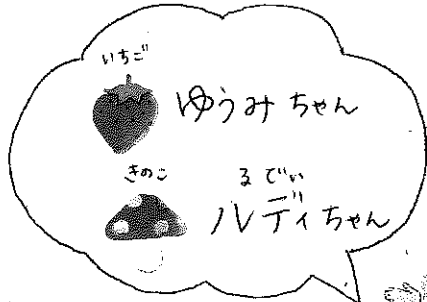 いちご
ゆうみちゃん
きのこ
るでぃ
ルディちゃん